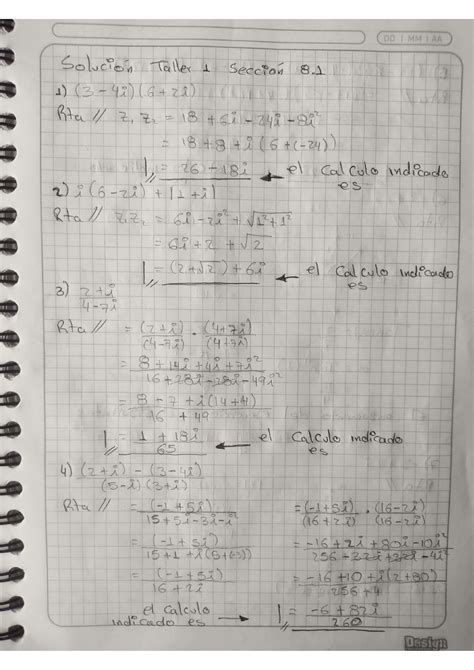 DD | MM | AA
Solución Taller 1 Sección 8.1
1) (3 - 4i)(6 + 2i)
Rta // Z₁ Z₂ = 18 + 6i - 24i - 8i²
= 18 + 8 + i (6 + (-24))
= 26 - 18i ← el Calculo indicado es
2) i (6 - 2i) + |1 + i|
Rta // Z₁ Z₂ = 6i - 2i² + √1² + 1²
= 6i + 2 + √2
= (2 + √2) + 6i ← el Calculo indicado es
3) 2 + i / 4 - 7i
Rta // = (2 + i) / (4 - 7i) · (4 + 7i) / (4 + 7i)
= 8 + 14i + 4i + 7i² / 16 + 28i - 28i - 49i²
= 8 - 7 + i (14 + 4) / 16 + 49
= 1 + 18i / 65 ← el Calculo indicado es
4) (2 + i) - (3 - 4i) / (5 - i)(3 + i)
Rta // = (-1 + 5i) / 15 + 5i - 3i - i²
= (-1 + 5i) / 15 + 1 + i (5 + (-3))
= (-1 + 5i) / 16 + 2i
= (-1 + 5i) / (16 + 2i) · (16 - 2i) / (16 - 2i)
= -16 + 2i + 80i - 10i² / 256 - 32i + 32i - 4i²
= -16 + 10 + i (2 + 80) / 256 + 4
el Calculo indicado es → = -6 + 82i / 260
Design